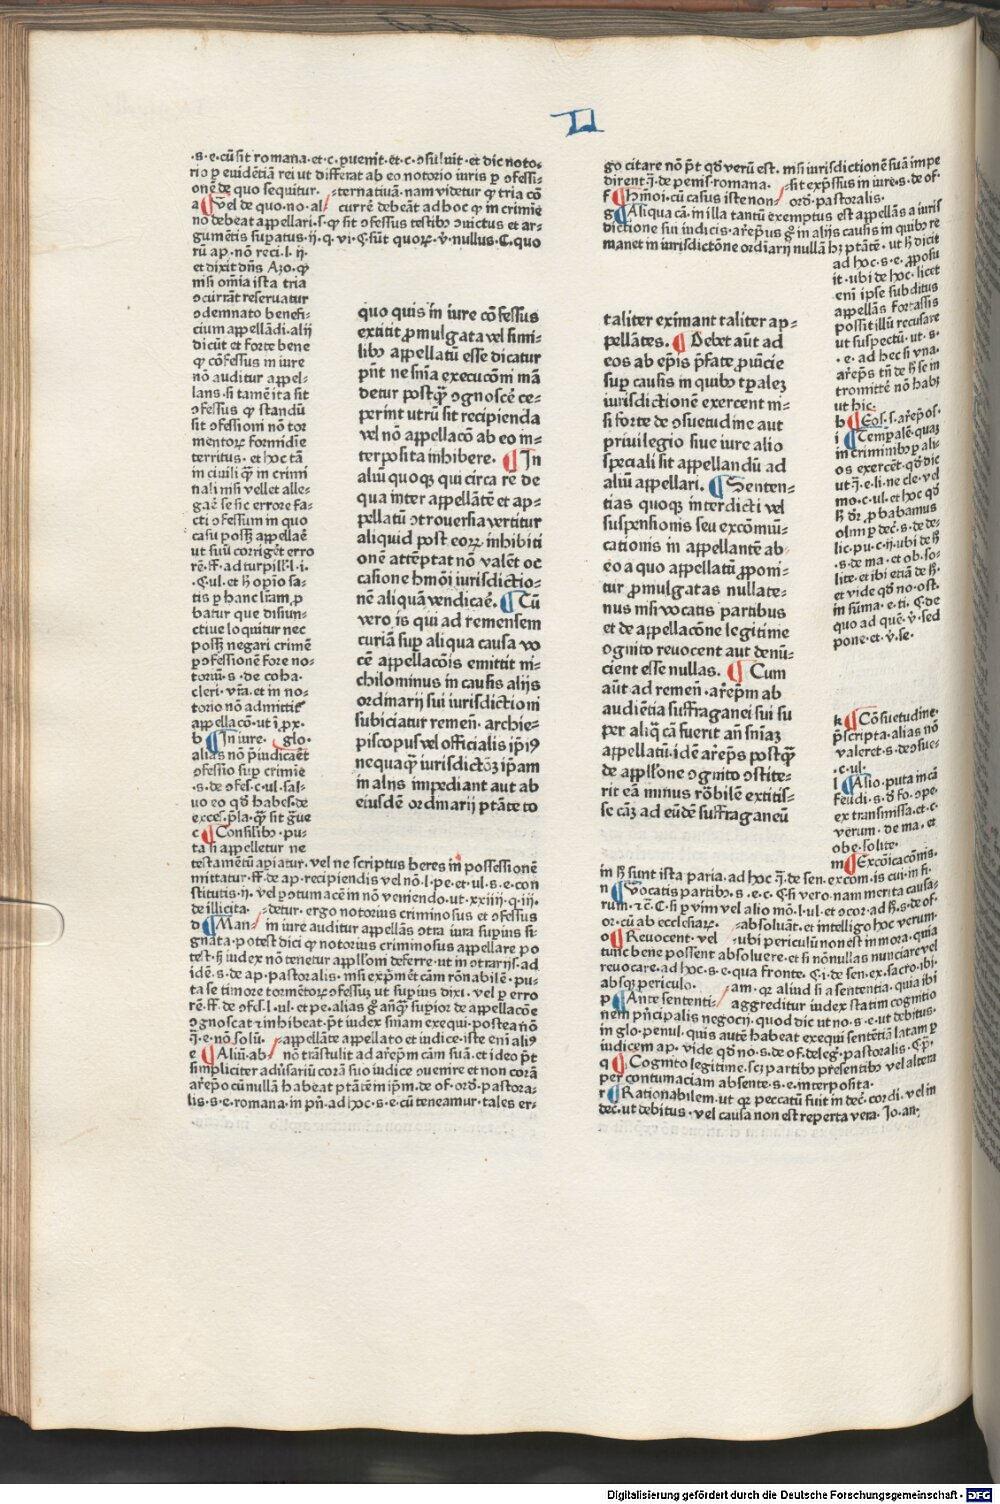 L
.s.e.cū sit romana.et.c.ꝓuenit.et.c.ↄsuluit.et dic noto-
rio ꝑ euidētiā rei ut differat ab eo notorio iuris ꝑ ↄfessi-
onē de quo sequitur.
a ¶ Vel de quo.no.al- ternatiuā.nam videtur ꝙ tria cō
currē debeāt ad hoc ꝙ in crimie
no debeat appellari.s.ꝙ sit ↄfessus testibꝰ ↄuictus et ar-
gumētis suꝑatus.ij.q.vi.
rū ap.nō reci.l.ij.
et dixit dn̄s Azo.ꝙ
nisi om̄ia ista tria
ↄcurrāt reseruatur
ↄdemnato benefi-
cium appellādi.alij
dicūt et forte bene
ꝙ cōfessus in iure
nō auditur appel-
lans.si tamē ita sit
ↄfessus ꝙ standū
sit ↄfessioni nō tor
mentoꝝ formidie
territus.et hoc tā
in ciuili ꝙ̄ in crimi
nali nisi vellet alle-
gaē se sic errore fa-
cti ↄfessum in quo
casu posꝫ appellaē
ut suū corrigēt erro
rē.ff.ad turpill.l.i.
.C.ul.et h̄ opio sa-
tis ꝑ hanc lr̄am ꝓ
batur que disiun-
ctiue loquitur nec
posꝫ negari crimē
ꝑ ↄfessionē fore no-
toriū.s.de coha.
cleri.vr̄a.et in no-
torio nō admittit
appellacō.ut i ꝓx.
b ¶ In iure. glo.
alias nō p̄iudicaēt
ↄfessio suꝑ crimie
.s.de ↄfes.c.ul.sal-
uo eo qd̄ habes.de
exces.p̄la.ꝙ̄ sit gͣue
c ¶ Consilibꝰ.pu-
ta si appelletur ne
testamētū apiatur.vel ne scriptus heres in possessionē
mittatur.ff.de ap.recipiendis vel nō.l.pe.et ul.s.e.con
stitutis.ij.vel ꝓpt ↄtumacē in nō veniendo.ut.xxiiij.q.iij.
de illicita.
d ¶ Man- detur.ergo notorius criminosus et ↄfessus
in iure auditur appellās ↄtra iura suꝑius si-
gnata.potest dici ꝙ notorius criminosus appellare po
test.h̄ iudex nō tenetur appl̄loni deferre.ut in ↄtrarijs.ad
idē.s.de ap.pastoralis.nisi exp̄mēt cām rōnabilē.pu-
ta se timore tormētoꝝ ↄfessuꝫ ut suꝑius dixi.vel ꝑ erro
rē.ff.de ↄfes.l.ul.et pe.alias gͦ an̄ꝗͣ suꝑior de appellacōe
ↄgnoscat ⁊ inhibeat.ꝓt iudex sn̄iam exequi.postea nō
e ¶ Aliū.ab- appellāte appellato et iudice.iste eni aliꝰ
nō trāstulit ad ar̄ep̄m cām suā.et ideo p̄t
simpliciter aduersariū corā suo iudice ↄuenire et non corā
ar̄ep̄o cū nullā habeat p̄tātē in ip̄m.de of.ord.pastora-
lis.s.e.romana.in pn̄.ad hoc.s.e.cū teneamur.tales er-
quo quis in iure cōfessus
extitit ꝓmulgata vel simi-
libꝰ appellatū esse dicatur
pn̄t ne sn̄ia execucōni mā
detur postꝙ̄ ↄgnoscē ce-
perint utrū sit recipienda
vel nō appellacō ab eo in-
terposita inhibere. ¶ In
aliū quoqꝫ qui circa rē de
qua inter appellātē et ap-
pellatū ↄtrouersia vertitur
aliquid post eoꝝ inhibiti
onē attēptat nō valēt oc
casione hm̄oi iurisdictio-
nē aliquā vendicaē. ¶ Cū
vero is qui ad remensem
curiā suꝑ aliqua causa vo
cē appellacōis emittit ni-
chilominus in causis alijs
ordinarij sui iurisdictioni
subiciatur remen̄.archie-
piscopus vel officialis ip̄iꝰ
nequaꝙ̄ iurisdictōꝫ ip̄am
in alijs impediant aut ab
eiusdē ordinarij p̄tāte to
go citare nō p̄t qd̄ verū est.nisi iurisdictionē suā impe
dirent.ī.de penis.romana.
f ¶ Hm̄oi.cū casus iste non- sit exp̄ssus in iure.s.de of.
ord.pastoralis.
g ¶ Aliqua cā.in illa tantū exemptus est appellās a iuris
dictione sui iudicis.ar̄ep̄us gͦ in alijs causis in quibꝰ re
manet in iurisdictōne ordiarij nullā hꝫ p̄tātē.ut h̄ dicit
ad hoc.s.e.ꝓposu
it.ubi de hoc.licet
eni ipse subditus
appellās fortassis
possit illū recusare
ut suspectū.ut.s.
.e.ad hec si vna.
ar̄ep̄s tn̄ de h̄ se in
tromittē nō habꝫ
ut hic.
h ¶ Eos.s.ar̄ep̄os.
i ¶ Tempalē.quaꝫ
in criminibꝰ ꝑ ali-
os exercēt.qd̄ dic
ut ī.e.li.ne cle.vel
mo.c.ul.et hoc qd̄
h̄ dr̄ ꝓbabamus
olim ꝑ dec̄.s.de de-
lic.pu.c.ij.ubi de h̄
.s.de ma.et ob.so-
lite.et ibi etiā de h̄.
et vide qd̄ no.ost.
in sūma.e.ti.¶.de
quo ad quē.v̄.sed
pone.et.v̄.se.
k ¶ Cōsuetudine.
p̄scripta.alias nō
valeret.s.de ↄsue-
.c.ul.
l ¶ Alio.puta in cā
feudi.s.d̄ fo.ↄpe.
ex transmissa.et.c.
verum.de ma.et
obe.solite.
m ¶ Excōicacōnis.
in h̄ sunt ista paria.ad hoc ī.de sen.excom.is cui.in fi.
n ¶ Vocatis partibꝰ.s.e.c.¶.si vero.nam merita causa-
rum.⁊ē.C.si ꝑ vim vel alio mō.l.ul.et ↄcor.ad h̄.s.de of.
or.cū ab ecclesiaꝝ.
o ¶ Reuocent.vel- absoluāt.et intelligo hoc verum
ubi periculū non est in mora.quia
tunc bene possent absoluere.et si nō nullas nunciare vel
reuocare.ad hoc.s.e.qua fronte.¶.i.de sen.ex.sacro.ibi
absqꝫ periculo.
p ¶ Ante sententi- am.qꝫ aliud si a sententia.quia ibi
aggreditur iudex statim cognitio
nem pn̄cipalis negocij.quod dic ut no.s.e.ut debitus.
in glo.penul.quis autē habeat exequi sentētiā latam ꝑ
iudicem ap.vide qd̄ no.s.de of.deleḡ.pastoralis.¶.p̄.
q ¶ Cognito legitime.scꝫ partibꝰ pr̄esentibꝰ vel altera
per contumaciam absente.s.e.interposita.
r ¶ Rationabilem.ut qꝛ peccatū fuit in dec̄.cordi.vel in
dec̄.ut debitus.vel causa non est reperta vera.Jo.an.
taliter eximant taliter ap-
pellātes. ¶ Debet aūt ad
eos ab ep̄is p̄fate ꝓuicie
suꝑ causis in quibꝰ tp̄aleꝫ
iurisdictionē exercent ni-
si forte de ↄsuetudine aut
priuilegio siue iure alio
speciali sit appellandū ad
aliū appellari. ¶ Senten-
tias quoqꝫ interdicti vel
suspensionis seu excōmu̅-
cationis in appellantē ab
eo a quo appellatū ꝓponi-
tur ꝓmulgatas nullate-
nus nisi vocatis partibus
et de appellacōne legitime
ↄgnito reuocent aut denū-
cient esse nullas. ¶ Cum
aūt ad remen̄.ar̄ep̄m ab
audiētia suffraganei sui su
per aliꝗͣ cā fuerit an̄ sn̄iaꝫ
appellatū.idē ar̄ep̄s postꝙ̄
de appl̄lone ↄgnito ↄstite-
rit eā minus rōbilē extitis-
se cāꝫ ad eūdē suffraganeū
Digitalisierung gefördert durch die Deutsche Forschungsgemeinschaft - DFG